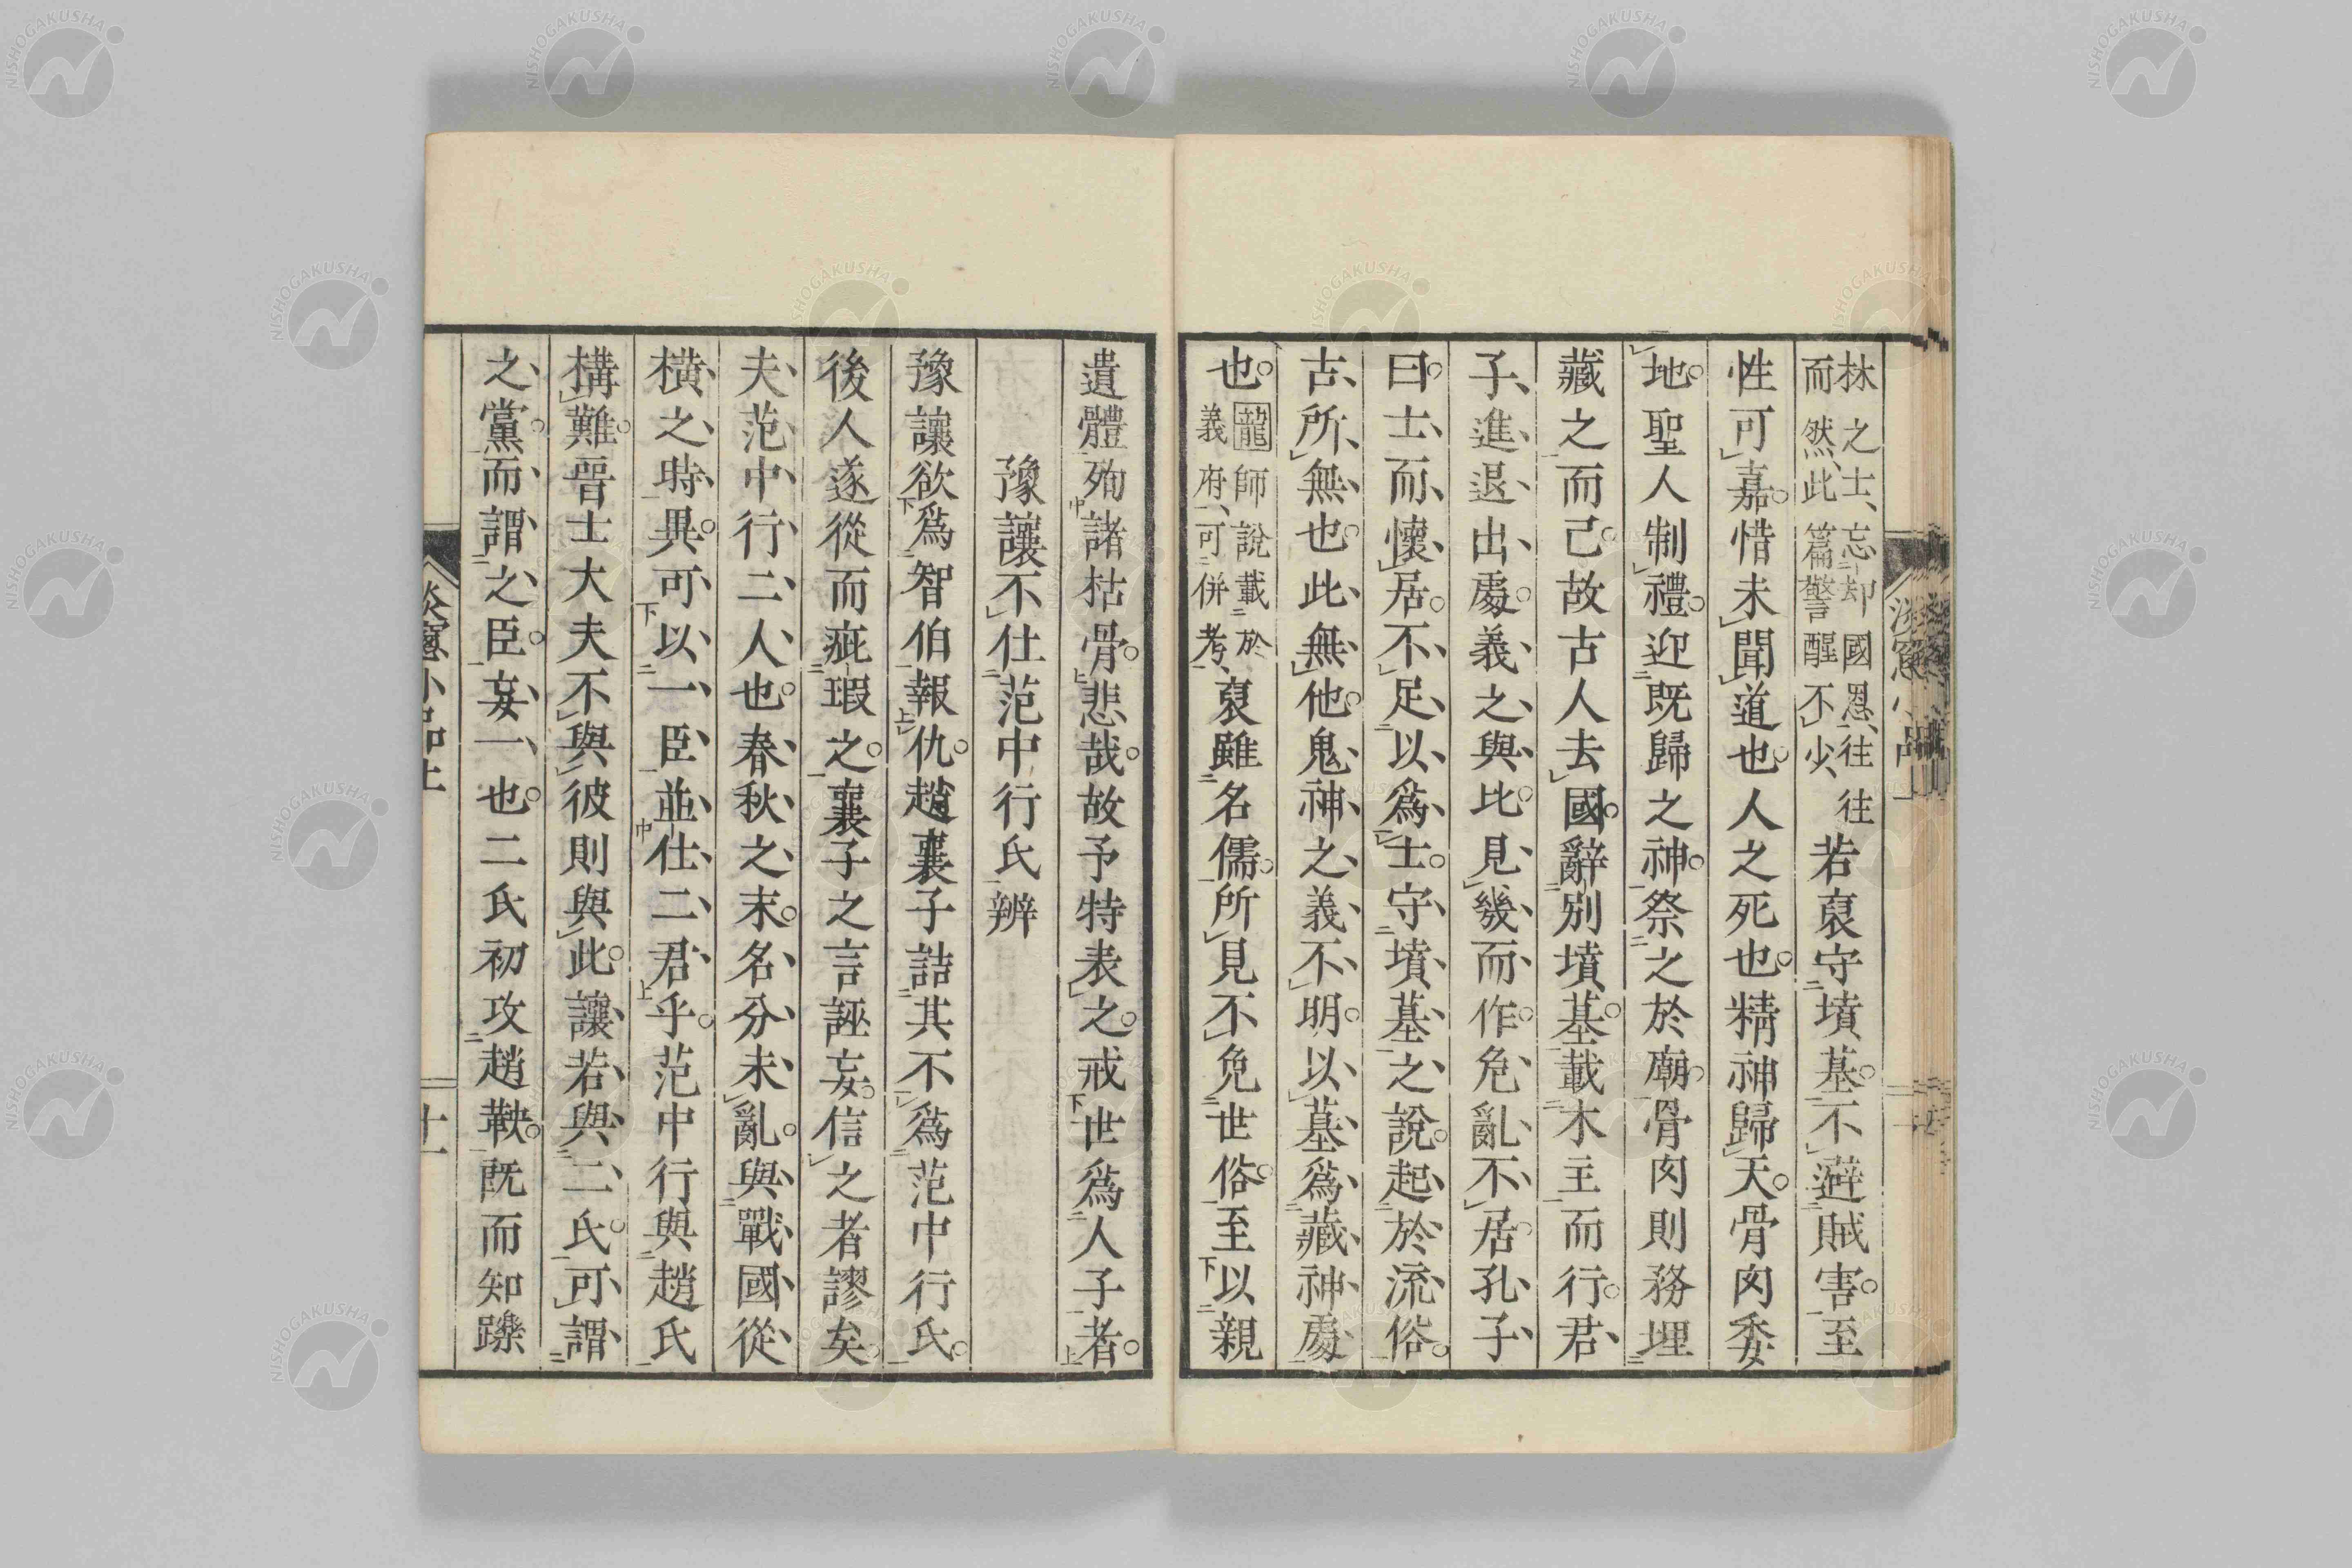 林之士、忘却國恩、往往
而然、此篇警醒不少、
若裒守墳墓。不避賊害。至
性可嘉。惜未聞道也。人之死也。精神歸天。骨肉委
地。聖人制禮。迎既歸之神。祭之於廟。骨肉則務埋
藏之而已。故古人去國。辭別墳墓。載木主而行。君
子、進退出處。義之與比。見幾而作。危亂不居。孔子
曰。士而懷居。不足以爲士。守墳墓之說。起於流俗。
古所無也。此無他。鬼神之義不明。以墓爲藏神處
也。
龍師說載於
義府、可併考、
裒雖名儒。所見不免世俗。至以親
遺體殉諸枯骨。悲哉。故予特表之。戒世爲人子者。
豫讓不仕范中行氏辨
豫讓欲爲智伯報仇。趙襄子詰其不爲范中行氏。
後人遂從而疵瑕之。襄子之言誣妄。信之者謬矣。
夫范中行二人也。春秋之末。名分未亂。與戰國從
橫之時異。可以一臣並仕二君乎。范中行與趙氏
構難。晉士大夫不與彼則與此。讓若與二氏。可謂
之黨。而謂之臣。妄一也。二氏初攻趙鞅。既而知躒
談窻小品上
十一
NISHOGAKUSHA